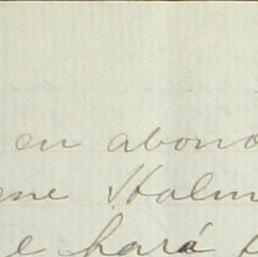 en abono
ene Holm
e hará